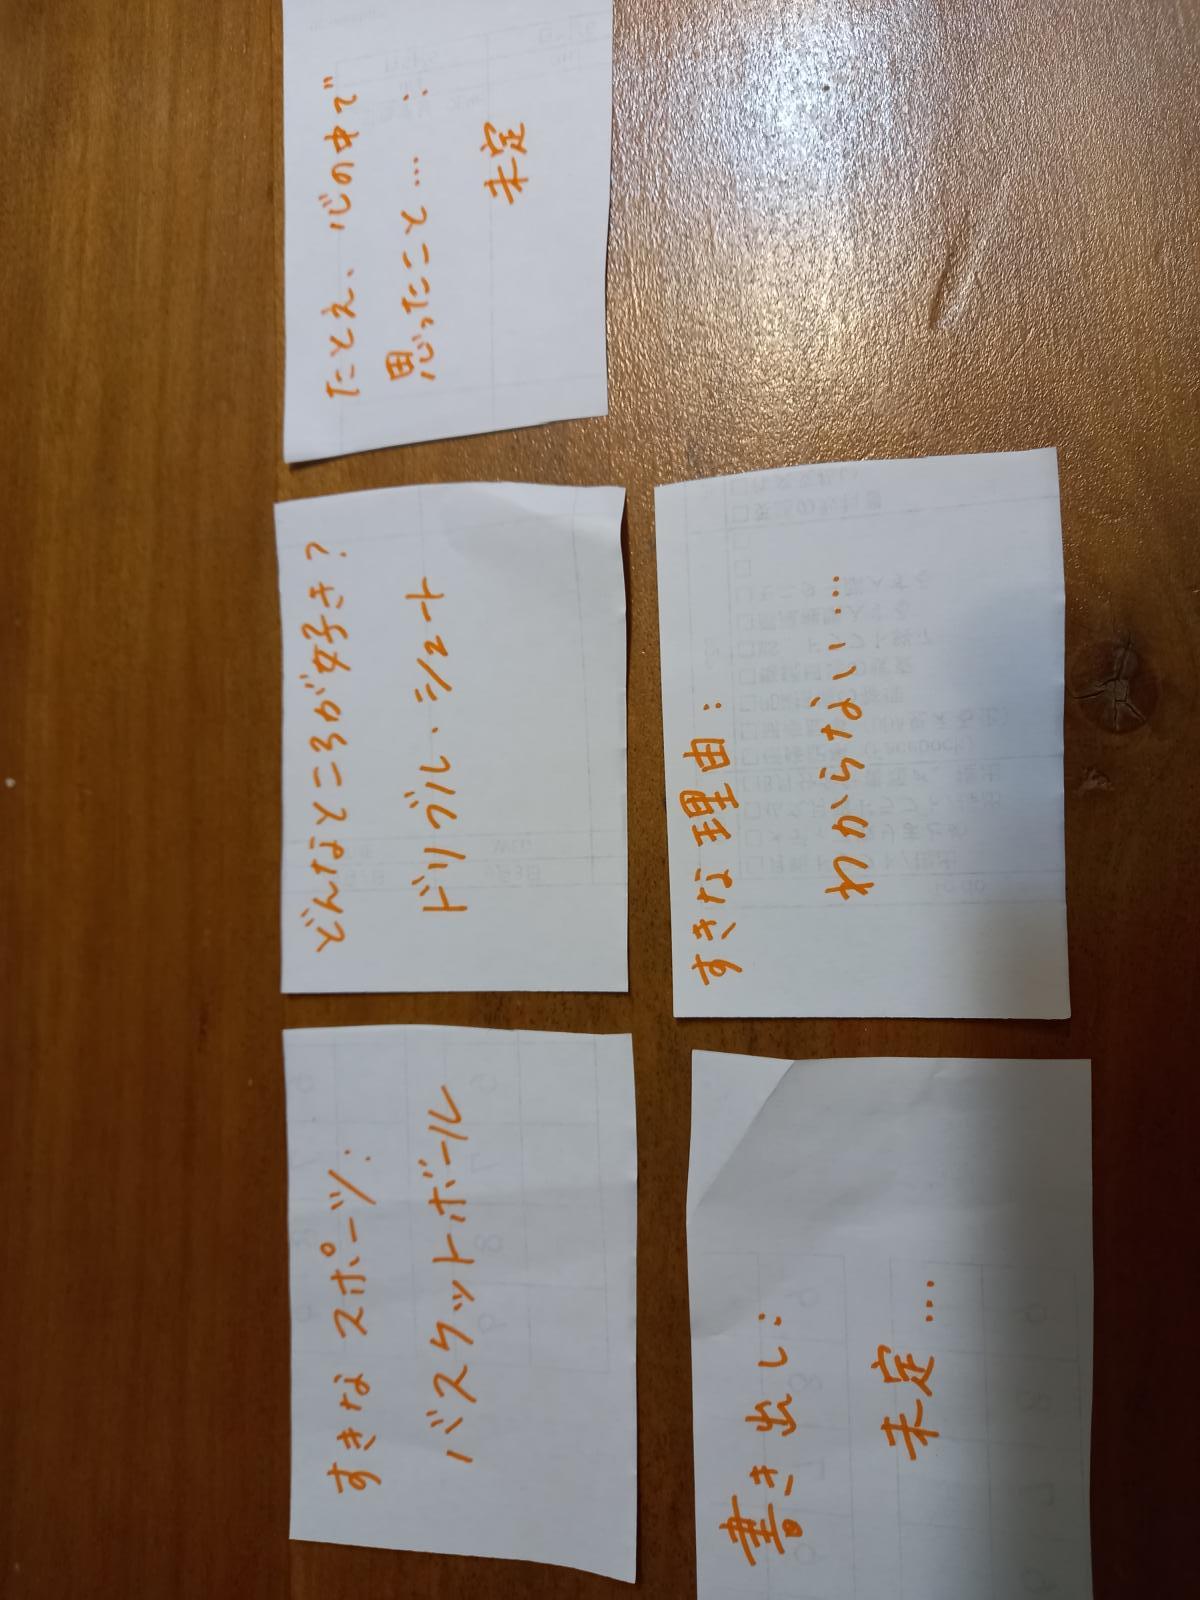 すきなスポーツ:
バスケットボール
どんなところが好き?
ドリブル・シュート
たとえ、心の中で
思ったこと…:
未定
書き出し:
未定…
すきな理由:
わからない…